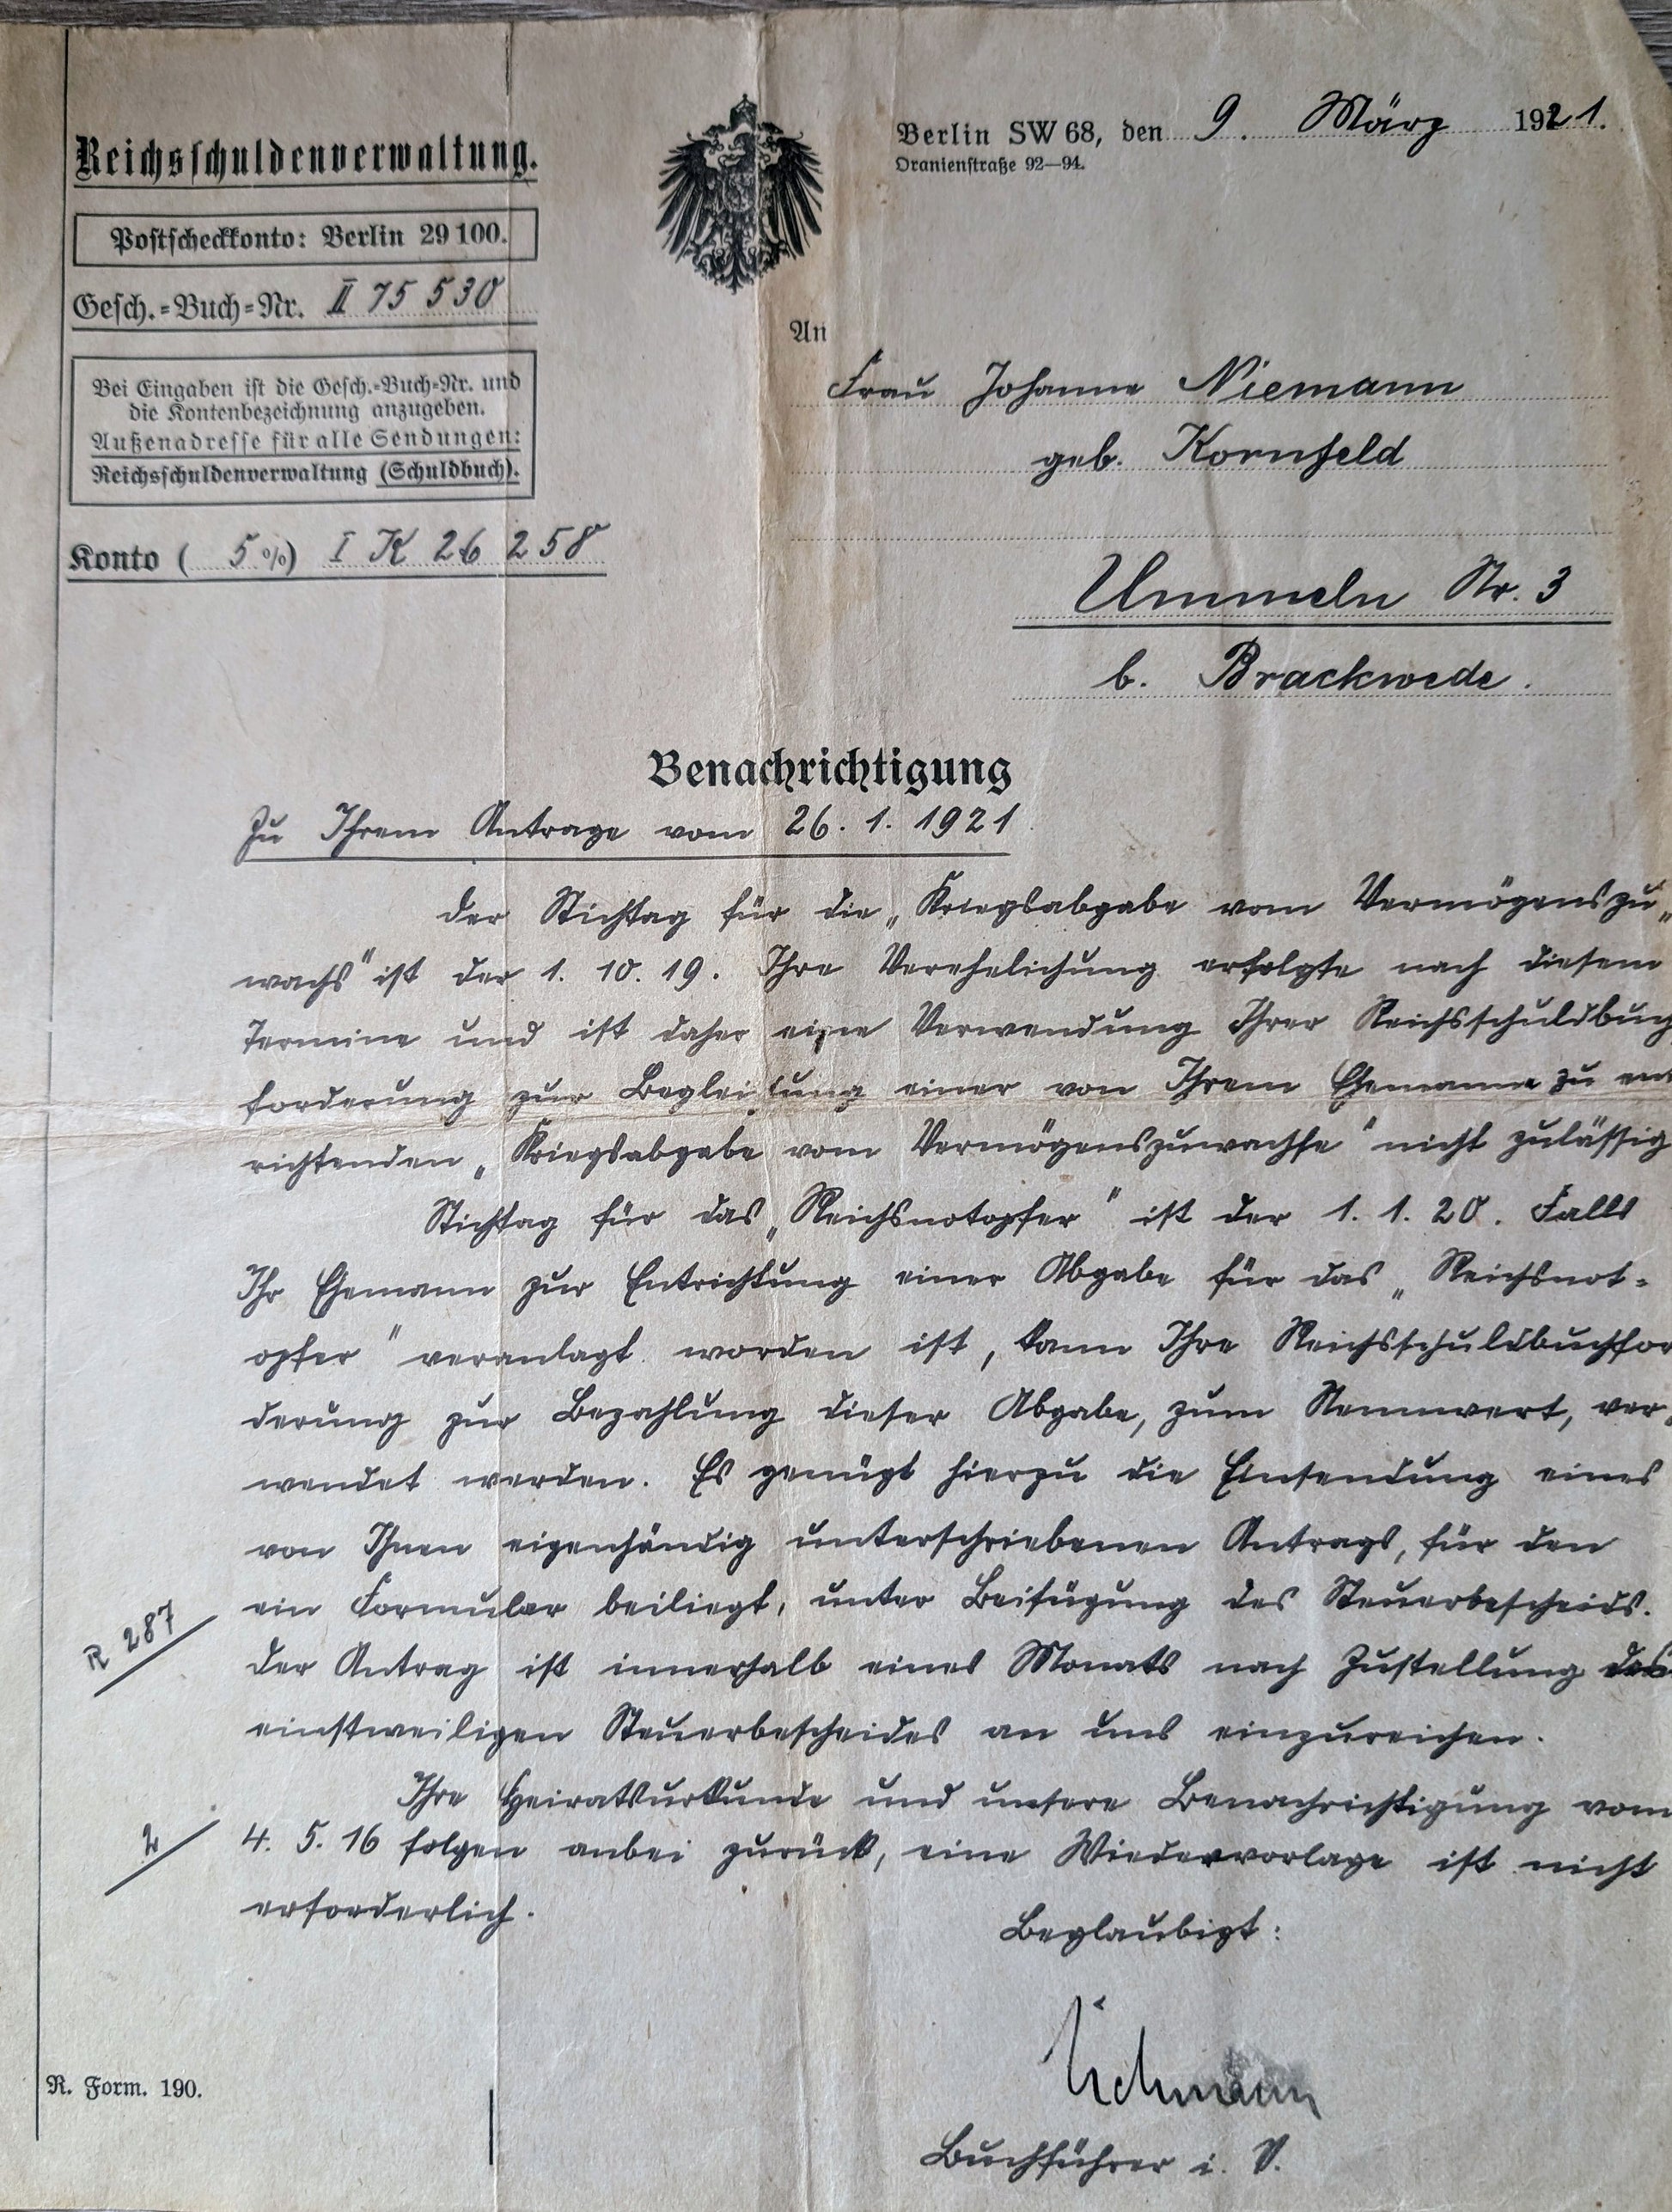 Reichsschuldenverwaltung.
Postscheckkonto: Berlin 29 100.
Gesch.=Buch=Nr. II 75 530
Bei Eingaben ist die Gesch.=Buch=Nr. und
die Kontenbezeichnung anzugeben.
Außenadresse für alle Sendungen:
Reichsschuldenverwaltung (Schuldbuch).
Konto ( 5 %) I K 26 258
Berlin SW 68, den 9. März 1921.
Oranienstraße 92—94.
An
Frau Johanne Niemann
geb. Kornfeld
Ummeln Nr. 3
b. Brackwede.
Benachrichtigung
Zu Ihrem Antrage vom 26. 1. 1921
Der Stichtag für die „Kriegsabgabe vom Vermögenszu„
wachs" ist der 1. 10. 19. Ihre Verehelichung erfolgte nach diesem
Termine und ist daher eine Verwendung Ihrer Reichsschuldbuch
forderung zur Begleichung einer von Ihrem Ehemanne zu ent
richtenden „Kriegsabgabe vom Vermögenszuwachse" nicht zulässig
Stichtag für das „Reichsnotopfer" ist der 1. 1. 20. Falls
Ihr Ehemann zur Entrichtung einer Abgabe für das „Reichsnot=
opfer" veranlagt worden ist, kann Ihre Reichsschuldbuchfor
derung zur Bezahlung dieser Abgabe, zum Nennwert, ver„
wendet werden. Es genügt hierzu die Einsendung eines
von Ihnen eigenhändig unterschriebenen Antrags, für den
ein Formular beiliegt, unter Beifügung des Steuerbescheids.
R 287
Der Antrag ist innerhalb eines Monats nach Zustellung des
einstweiligen Steuerbescheides an uns einzureichen.
Ihre Heiratsurkunde und unsere Benachrichtigung vom
2
4. 5. 16 folgen anbei zurück, eine Wiedervorlage ist nicht
erforderlich.
Beglaubigt:
Buchführer i. V.
R. Form. 190.